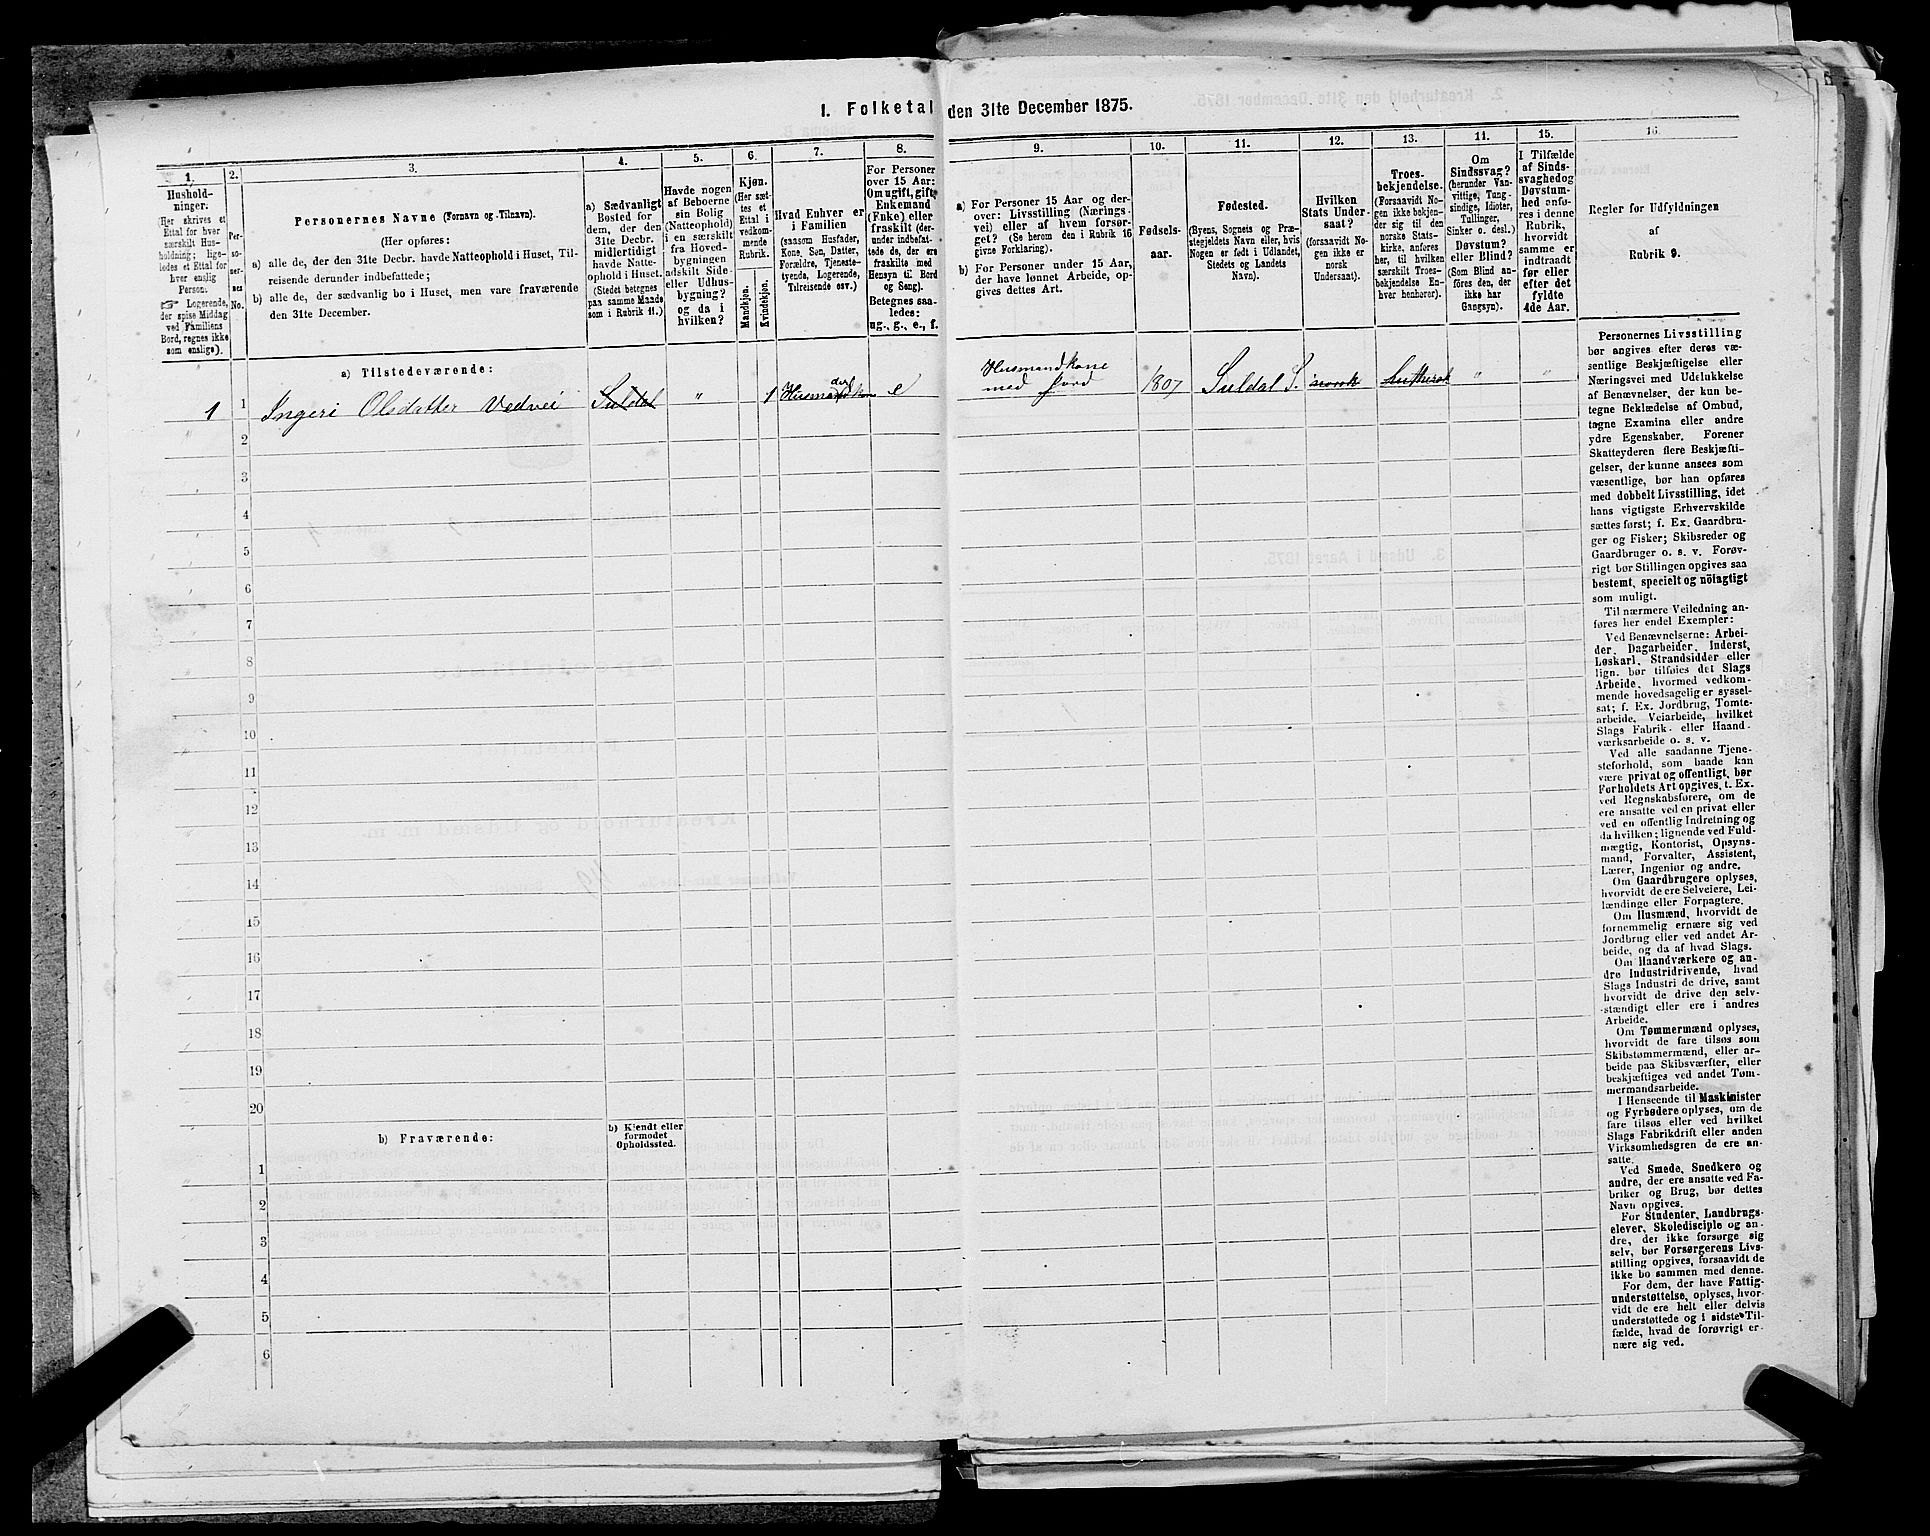 1. Folketal den 31te December 1875.
1.
Hushold-
ninger.
(Her skrives et
Ettal for hver
særskilt Hus-
holdning; lige-
ledes et Ettal for
hver enslig
Person.
☞ Logerende,
der spise Middag
ved Familiens
Bord, regnes ikke
som enslige).
2.
Per-
so-
ner-
nes
No.
3.
Personernes Navne (Fornavn og Tilnavn).
(Her opføres:
a) alle de, der den 31te Decbr. havde Natteophold i Huset, Til-
reisende derunder indbefattede;
b) alle de, der sædvanlig bo i Huset, men vare fraværende
den 31te December.
4.
a) Sædvanligt
Bosted for
dem, der den
31te Decbr.
midlertidigt
havde Natte-
ophold i Huset.
(Stedet betegnes
paa samme Maade
som i Rubrik 11.)
5.
Havde nogen
af Beboerne
sin Bolig
(Natteophold)
i en særskilt
fra Hoved-
bygningen
adskilt Side-
eller Udhus-
bygning?
og da i
hvilken?
6.
Kjøn.
(Her sæt-
tes et
Ettal i
vedkom-
mende
Rubrik.
Mandkjøn.
Kvindekjøn.
7.
Hvad Enhver er
i Familien
(saasom Husfader,
Kone, Søn, Datter,
Forældre, Tjeneste-
tyende, Logerende,
Tilreisende osv.)
8.
For Personer
over 15 Aar:
Om ugift, gift,
Enkemand
(Enke) eller
fraskilt (der-
under indbefat-
tede de, der ere
fraskilte med
Hensyn til Bord
og Seng).
Betegnes saa-
ledes:
ug., g., e., f.
9.
a) For Personer 15 Aar og der-
over: Livsstilling (Nærings-
vei) eller af hvem forsør-
get? (Se herom den i Rubrik 16
givne Forklaring).
b) For Personer under 15 Aar,
der have lønnet Arbeide, op-
gives dettes Art.
10.
Fødsels-
aar.
11.
Fødested.
(Byens, Sogneis og Præ-
stegjeldets Navn eller, hvis
Nogen er født i Udlandet,
Stedets og Landets
Navn).
12.
Hvilken
Stats Under-
saat?
(forsaavidt No-
gen ikke er
norsk
Undersaat).
13.
Troes-
bekjendelse.
(Forsaavidt No-
gen ikke bekjen-
der sig til den
norske Stats-
kirke, anføres
her, til hvilken
særskilt Troes-
bekjendelse En-
hver henhører).
11.
Om
Sindssvag?
(herunder Van-
vittige, Tung-
sindige, Idioter,
Tullinger,
Sinker o. desl.)
Døvstum?
eller Blind?
(Som Blind an-
føres den, der
ikke har
Gangsyn).
15.
I Tilfælde
af Sinds-
svaghed og
Døvstum-
hed anfø-
res i denne
Rubrik,
hvorvidt
samme er
indtraadt
før eller
efter det
fyldte
4de Aar.
16.
Regler for Udfyldningen
af
Rubrik 9.
a) Tilstedeværende:
1 1 Ingeri Olsdatter Vedvei Suldal " 1 e Husmandkone med jord 1807 Suldal S. norsk Luthersk " "
2
3
4
5
6
7
8
9
10
11
12
13
14
15
16
17
18
19
20
b) Fraværende:
b) Kjendt eller
formodet
Opholdssted.
1
2
3
4
5
6
Personernes Livsstilling
bør angives efter deres væ-
sentlige Beskjæftigelse eller
Næringsvei med Udelukkelse
af Benævnelser, der kun be-
tegne Beklædelse af Ombud,
tagne Examina eller andre
ydre Egenskaber. Forener
Skatteyderen flere Beskjæfti-
gelser, der kunne ansees som
væsentlige, bør han opføres
med dobbelt Livsstilling, idet
hans vigtigste Erhvervskilde
sættes først; f. Ex. Gaardbru-
ger og Fisker; Skibsreder og
Gaardbruger o. s. v. Forøv-
rigt bør Stillingen opgives saa
bestemt, specielt og nöiagtigt
som muligt.
Til nærmere Veiledning an-
føres her endel Exempler:
Ved Benævnelserne: Arbei-
der, Dagarbeider, Inderst,
Løskarl, Strandsidder eller
lign. bør tilføies det Slags
Arbeide, hvormed vedkom-
mende hovedsagelig er syssel-
sat; f. Ex. Jordbrug, Tomte-
arbeide, Veiarbeide, hvilket
Slags Fabrik- eller Haand-
værksarbeide o. s. v.
Ved alle saadanne Tjene-
steforhold, som baade kan
være privat og offentligt, bør
Forholdets Art opgives, t. Ex.
ved Regnskabsførere, om de
ere ansatte ved en privat eller
ved en offentlig Indretning og
da hvilken; lignende ved Fuld-
mægtig, Kontorist, Opsyns-
mand, Forvalter, Assistent,
Lærer, Ingeniør og andre.
Om Gaardbrugere oplyses,
hvorvidt de ere Selveiere, Lei-
lændinge eller Forpagtere.
Om Husmænd, hvorvidt de
fornemmelig ernære sig ved
Jordbrug eller ved andet Ar-
beide, og da af hvad Slags.
Om Haandværkere og an-
dre Industridrivende, hvad
Slags Industri de drive, samt
hvorvidt de drive den selv-
stændigt eller ere i andres
Arbeide.
Om Tømmermænd oplyses,
hvorvidt de fare tilsøs som
Skibstømmermænd, eller ar-
beide paa Skibsværfter, eller
beskjæftiges ved andet Tøm-
mermandsarbeide.
I Henseende til Maskinister
og Fyrbødere oplyses, om de
fare tilsøs eller ved hvilket
Slags Fabrikdrift eller anden
Virksomhedsgren de ere an-
satte.
Ved Smede, Snedkere og
andre, der ere ansatte ved Fa-
briker og Brug, bør dettes
Navn opgives.
For Studenter, Landbrugs-
elever, Skoledisciple og an-
dre, der ikke forsørge sig
selv, bør Forsørgerens Livs-
stilling opgives, forsaavidt de
ikke bo sammen med denne.
For dem, der have Fattig-
understøttelse, oplyses, hvor-
vidt de ere helt eller delvis
understøttede og i sidste Til-
fælde, hvad de forøvrigt er-
nære sig ved.